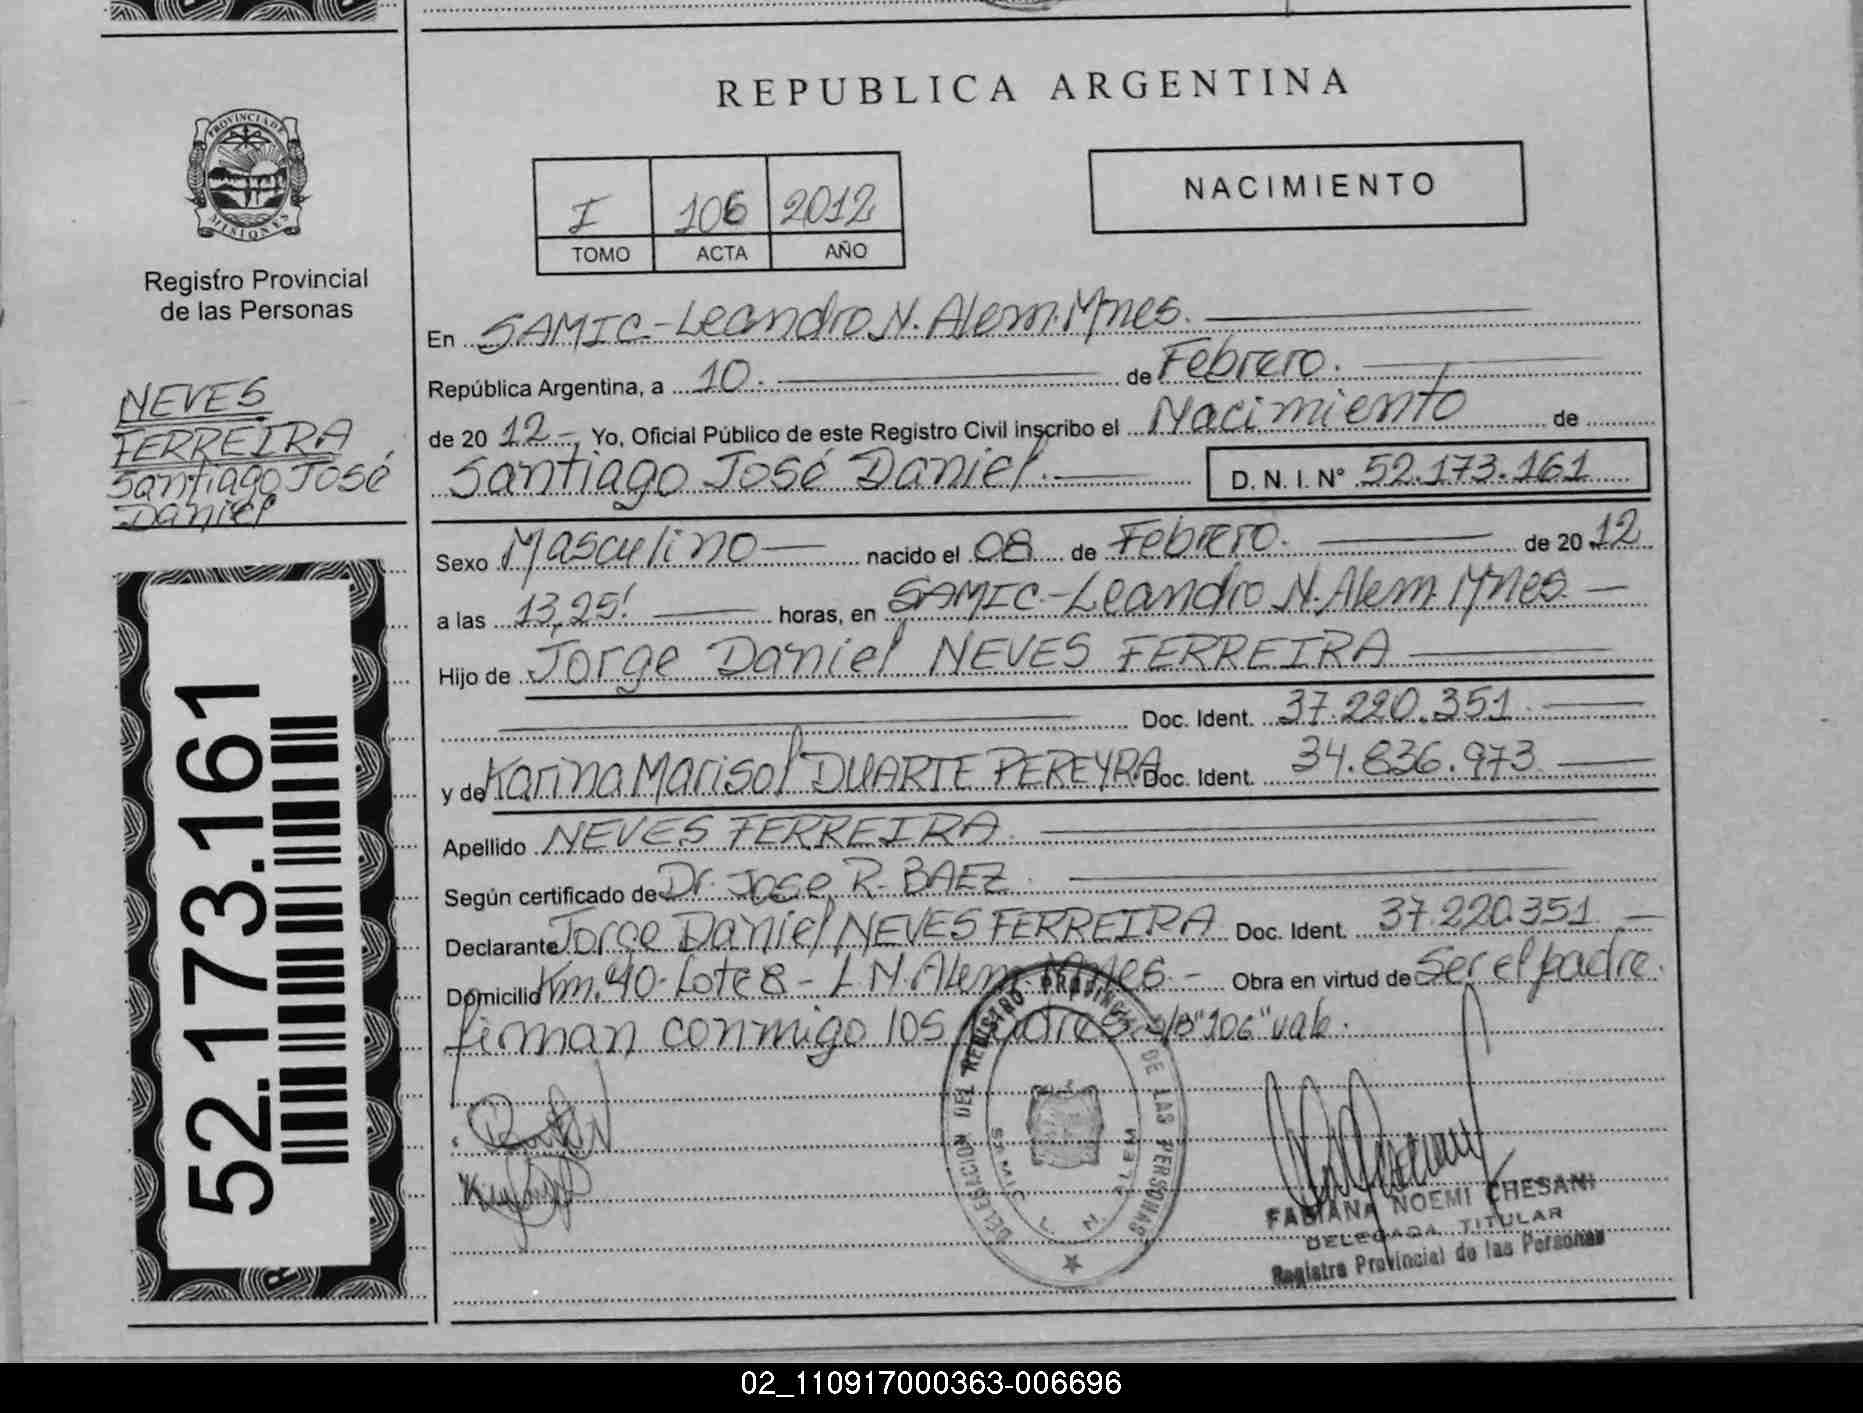 REPUBLICA ARGENTINA
PROVINCIA DE
MISIONES
Registro Provincial
de las Personas
I 106 2012
TOMO ACTA AÑO
NACIMIENTO
NEVES
FERREIRA
Santiago José
Daniel
52.173.161
En SAMIC-Leandro N. Alem. Mnes.
República Argentina, a 10. de Febrero.
de 20 12-, Yo, Oficial Público de este Registro Civil inscribo el Nacimiento de
Santiago José Daniel. D. N. I. Nº 52.173.161
Sexo Masculino nacido el 08 de Febrero. de 20 12
a las 13,25! horas, en SAMIC.-Leandro N. Alem. Mnes.
Hijo de Jorge Daniel NEVES FERREIRA
Doc. Ident. 37.220.351
y de Karina Marisol DUARTE PEREYRA Doc. Ident. 34.836.973
Apellido NEVES FERREIRA.
Según certificado de Dr. Jose R. BAEZ.
Declarante Jorge Daniel NEVES FERREIRA Doc. Ident. 37.220.351
Domicilio Km. 40-Lote 8 - L.N. Alem. Mnes.- Obra en virtud de Ser el padre.
firman conmigo los padres- S/B "106" vale.
DELEGACION DEL REGISTRO PROVINCIAL DE LAS PERSONAS
SAMIC L. N. ALEM
FABIANA NOEMI CHESANI
DELEGADA TITULAR
Registro Provincial de las Personas
02_110917000363-006696